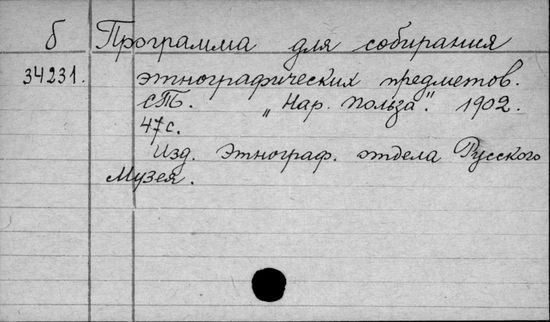 б Программа для собирания
34231. этнографических предметов.
СПб. „Нар. Польза". 1902.
47 с.
Изд. Этнограф. отдела Русского
Музея.